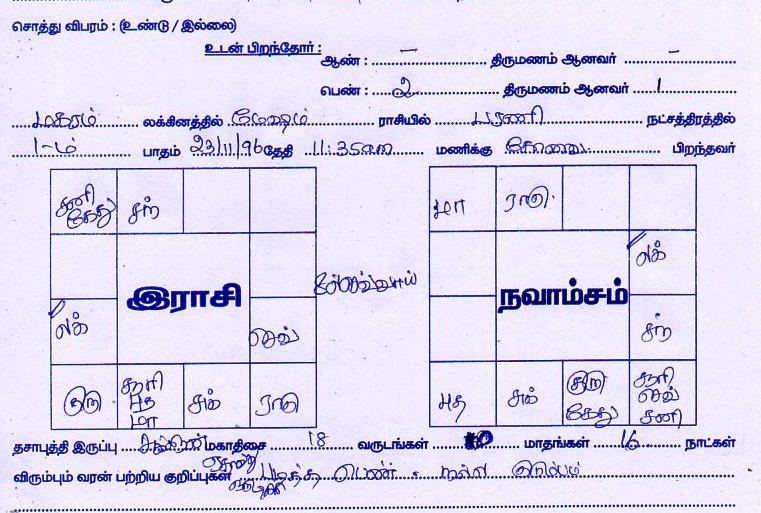 சொத்து விபரம் : (உண்டு / இல்லை)
உடன் பிறந்தோர் : ஆண் : – திருமணம் ஆனவர் –
பெண் : 2 திருமணம் ஆனவர் 1
மகரம் லக்கினத்தில் மேஷம் ராசியில் பரணி நட்சத்திரத்தில்
1-ம் பாதம் 23/11/96 தேதி 11:35 மணிக்கு பிறந்தவர்
சனி கேது சந்
மா ராகு
லக்
இராசி
செவ்வாய்
நவாம்சம்
லக் செவ்
சந்
குரு சூரி புத மா சுக் ராகு
புத சுக் குரு கேது சூரி செவ் சனி
தசாபுத்தி இருப்பு சுக்கிரன் மகாதிசை 18 வருடங்கள் 10 மாதங்கள் 16 நாட்கள்
விரும்பும் வரன் பற்றிய குறிப்புகள் படித்த பெண் நல்ல